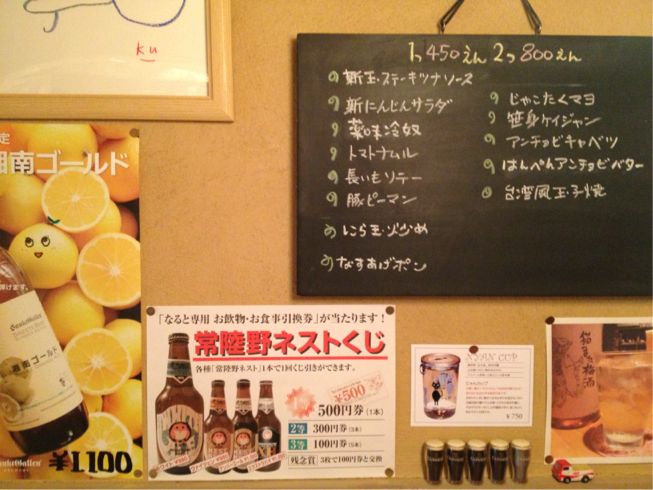 ku
定
湘南ゴールド
湘南ゴールド
¥1,100
1つ450えん 2つ800えん
の 新玉・ステーキツナソース
の 新にんじんサラダ
の 薬味冷奴
の トマトナムル
の 長いもソテー
の 豚ピーマン
め にら玉・炒め
め なすあげポン
の じゃこたくマヨ
の 笹身ケイジャン
の アンチョビキャベツ
の はんぺんアンチョビバター
の 台湾風玉子焼
「なると専用 お飲物・お食事引換券」が当たります!
常陸野ネストくじ
各種「常陸野ネスト」1本で1回くじ引きができます。
¥500
1等 500円券(1本)
2等 300円券(3本)
3等 100円券(5本)
残念賞 3枚で100円券と交換
NYAN CUP
にゃんカップ
¥750
梅酒